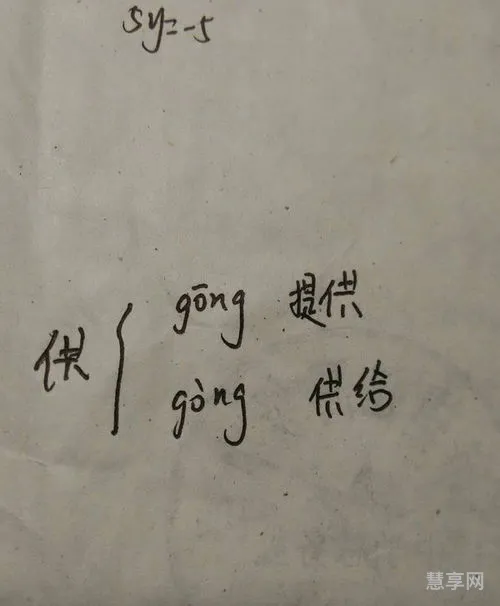 5y=-5
gōng 提供
供
gòng 供给
慧享网